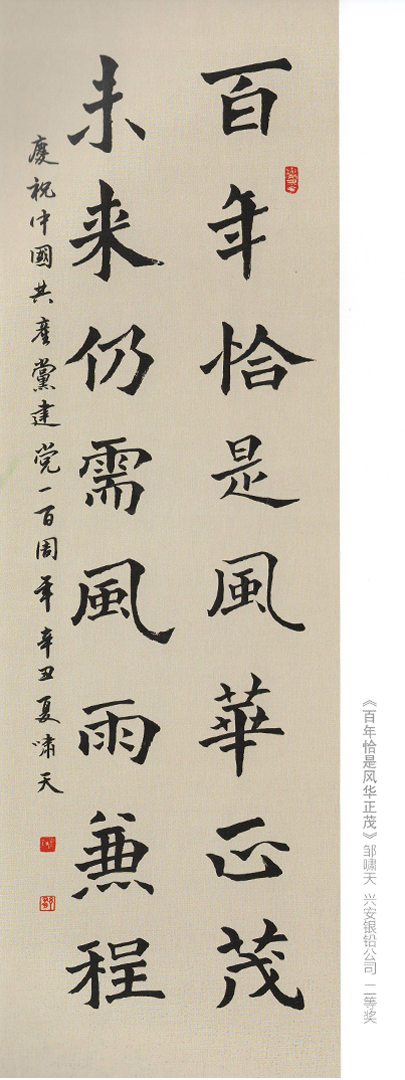 百年恰是風華正茂
未来仍需風雨兼程
慶祝中國共產黨建党一百周年辛丑夏嘯天
《百年恰是风华正茂》邹啸天 兴安银铅公司 二等奖